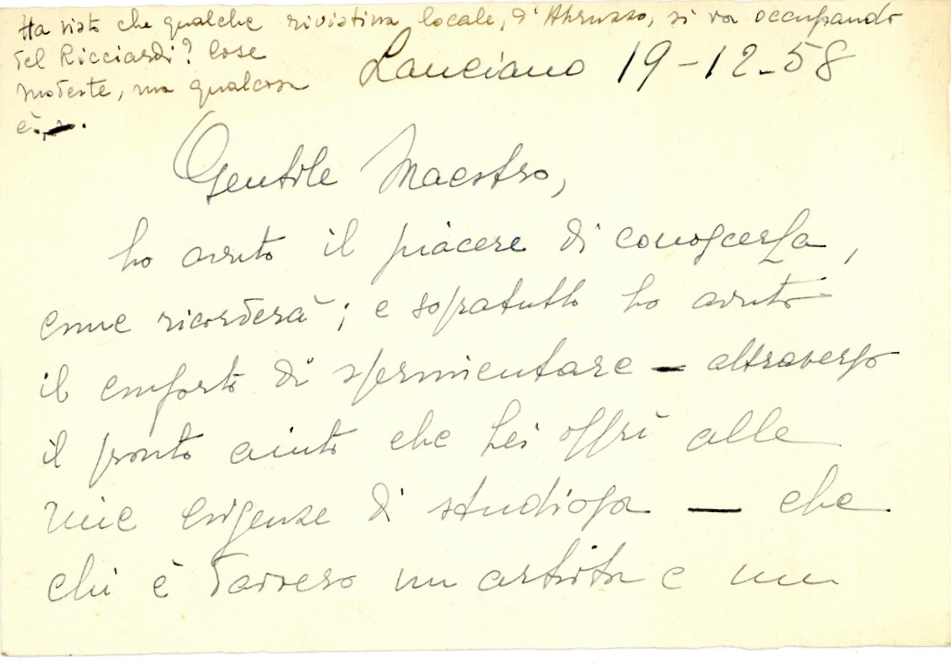 Ha visto che qualche rivistina locale, d'Abruzzo, si va occupando
del Ricciardi? Cose
modeste, ma qualcosa
è.
Lanciano 19-12-58
Gentile Maestro,
ho avuto il piacere di conoscerLa,
come ricorderà; e sopratutto ho avuto
il conforto di sperimentare – attraverso
il pronto aiuto che Lei offrì alle
mie esigenze di studiosa – che
chi è davvero un artista e un